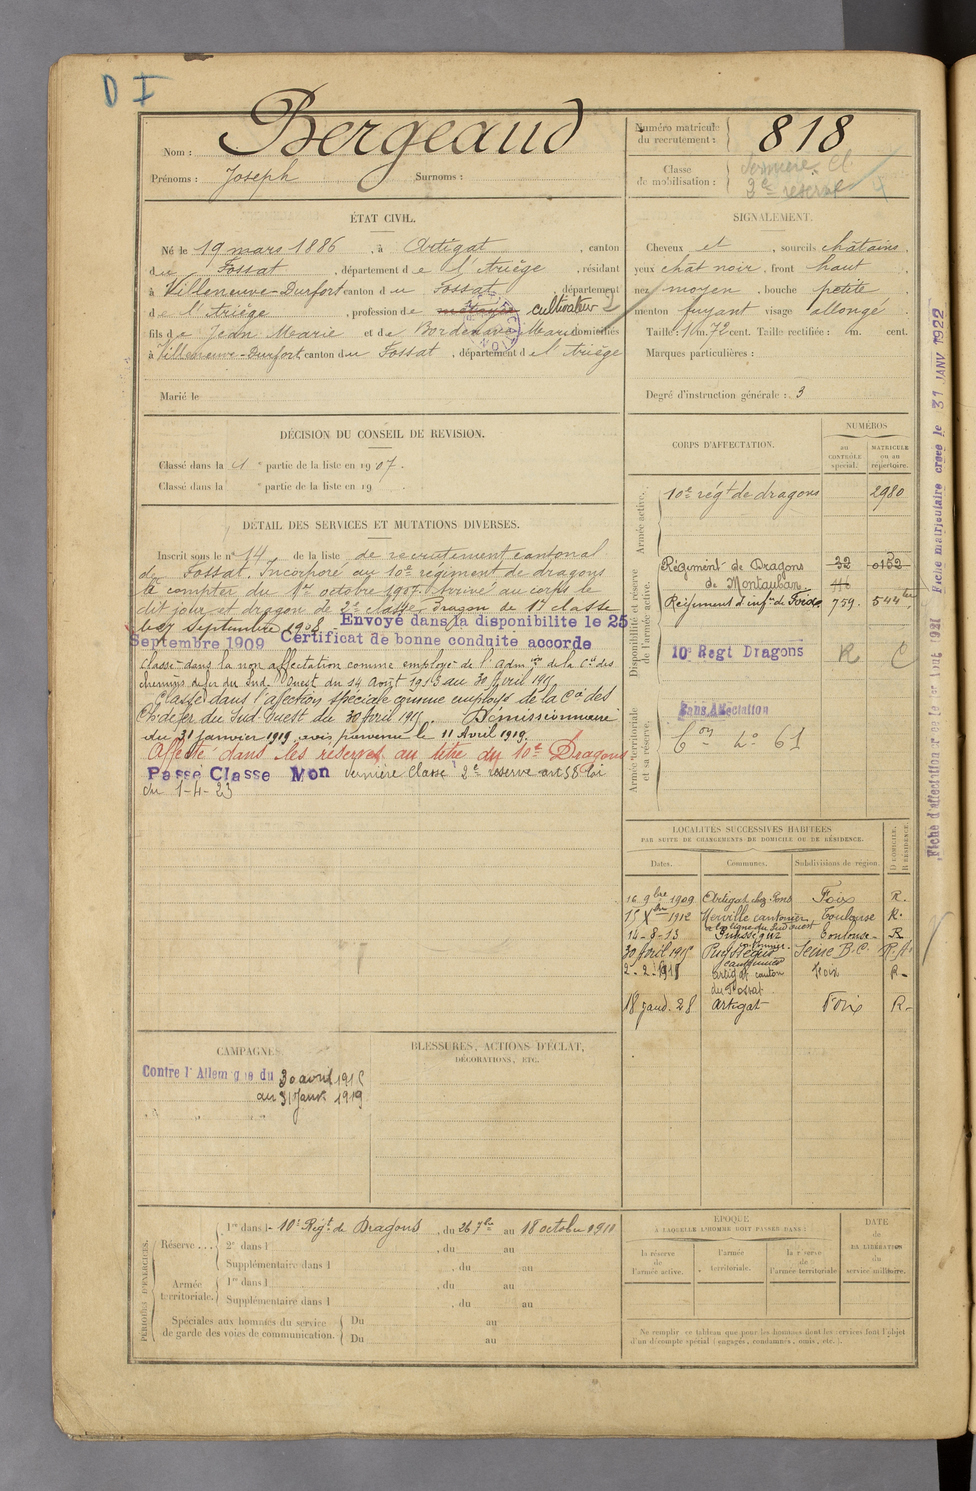 D I
Nom : Bergeaud
Prénoms : Joseph Surnoms :
Numéro matricule
du recrutement : 818
Classe
de mobilisation : dernière Cl
2e réserve
ÉTAT CIVIL.
Né le 19 mars 1886, à Artigat, canton
du Fossat, département de l'Ariège, résidant
à Villeneuve-Durfort canton du Fossat, département
de l'Ariège, profession de cultivateur
fils de Jean Marie et de Bordenave Marie domiciliés
à Villeneuve-Durfort canton du Fossat, département de l'Ariège
Marié le
SIGNALEMENT.
Cheveux et, sourcils châtains.
yeux chât noir, front haut,
nez moyen, bouche petite
menton fuyant visage allongé
Taille : 1 m. 72 cent. Taille rectifiée : m. cent.
Marques particulières :
Degré d'instruction générale : 3
DÉCISION DU CONSEIL DE REVISION.
Classé dans la 1e partie de la liste en 1907.
Classé dans la e partie de la liste en 19
DÉTAIL DES SERVICES ET MUTATIONS DIVERSES.
Inscrit sous le n° 14 de la liste de recrutement cantonal
de Fossat. Incorporé au 10e régiment de dragons
à compter du 1er octobre 1907. Arrivé au corps le
dit jour et dragon de 2e classe. Dragon de 1e classe
le 27 Septembre 1908. Envoyé dans la disponibilite le 25
Septembre 1909 Certificat de bonne conduite accorde
Classé dans la non affectation comme employé de l'Adm on de la Cie des
chemins de fer du Sud Ouest du 14 Août 1913 au 30 Avril 1915
Classé dans l'affection spéciale comme employé de la Cie des
Ch. de fer du Sud Ouest du 30 Avril 1915. Démissionnaire
du 31 janvier 1919 avis parvenu le 11 Avril 1919.
Affecté dans les réserves au titre du 10e Dragons
Passé Classe Mon dernière Classe 2e réserve art 58 loi
du 1-4-23
CORPS D'AFFECTATION.
NUMÉROS
au
CONTRÔLE
spécial.
MATRICULE
ou au
répertoire.
Armée active.
10e régt de dragons 2980
Disponibilité et réserve
de l'armée active.
Régiment de Dragons 32 0152
de Montauban
Régiment d'infie de Foix 759. 544 ter
10e Regt Dragons R C
Armée territoriale
et sa réserve.
Sans Affectation
Con L° 61
LOCALITÉS SUCCESSIVES HABITÉES
PAR SUITE DE CHANGEMENTS DE DOMICILE OU DE RÉSIDENCE.
Dates. Communes. Subdivisions de région. D DOMICILE. R RÉSIDENCE.
16 9bre 1909 Artigat chez Pons Foix R.
15 Xbre 1912 Merville cantonier Toulouse R.
à la ligne du Sud Ouest
14-8-13 Toulouse R
30 Avril 1915 Seine B.C.
cantonnier
2-2-1918 Artigat canton Foix R-
du Fossat
18 janv. 28 Artigat Foix R-
CAMPAGNES
Contre l'Allemagne du 30 avril 1915
au 31 Janv 1919
BLESSURES, ACTIONS D'ÉCLAT,
DÉCORATIONS, ETC.
PÉRIODES D'EXERCICES.
Réserve... 1re dans l- 10e Régt de Dragons, du 26 7bre au 18 octobre 1911
2e dans l , du au
Supplémentaire dans l , du au
Armée
territoriale. 1re dans l , du au
Supplémentaire dans l , du au
Spéciales aux hommes du service
de garde des voies de communication. Du au
Du au
ÉPOQUE
À LAQUELLE L'HOMME DOIT PASSER DANS :
la réserve
de
l'armée active.
l'armée
territoriale.
la réserve
de
l'armée territoriale
DATE
de
LA LIBÉRATION
du
service militaire.
Ne remplir ce tableau que pour les hommes dont les services font l'objet
d'un décompte spécial (engagés, condamnés, omis, etc.).
Fiche matriculaire créée le 31 JANV 1922